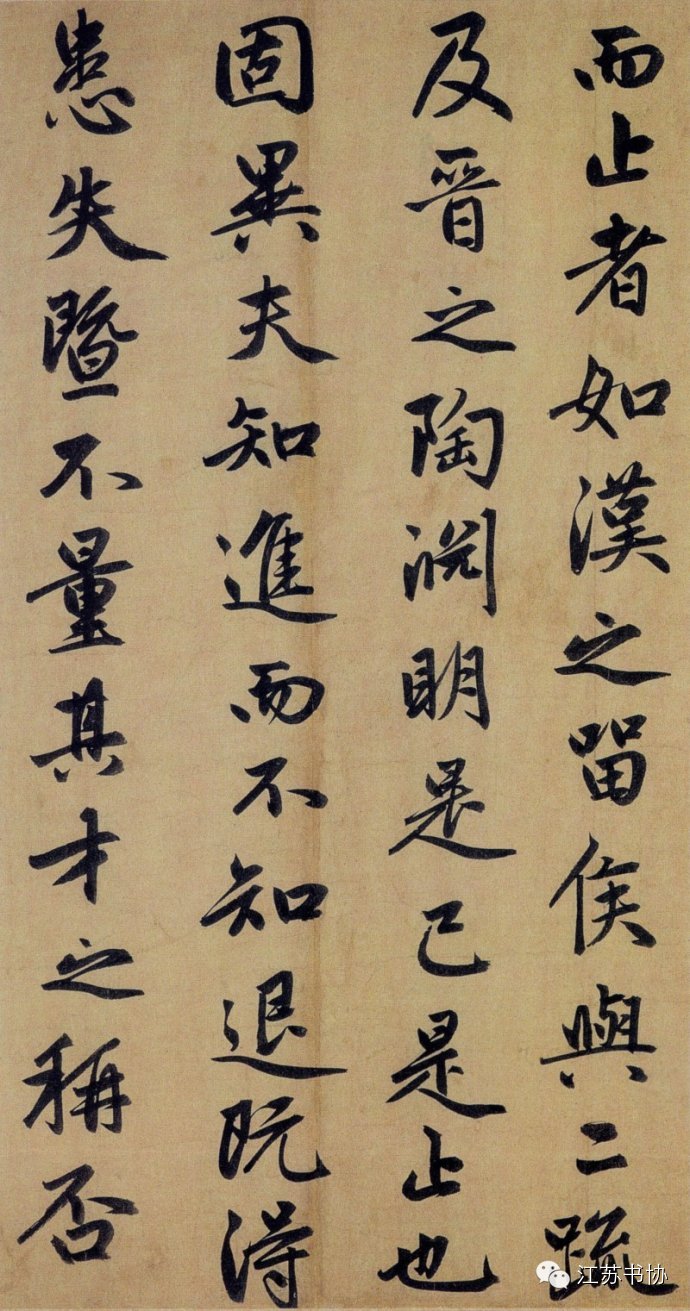 而止者如漢之留侯與二疏
及晉之陶淵明是已是止也
固異夫知進而不知退既得
患失暨不量其才之稱否
江苏书协